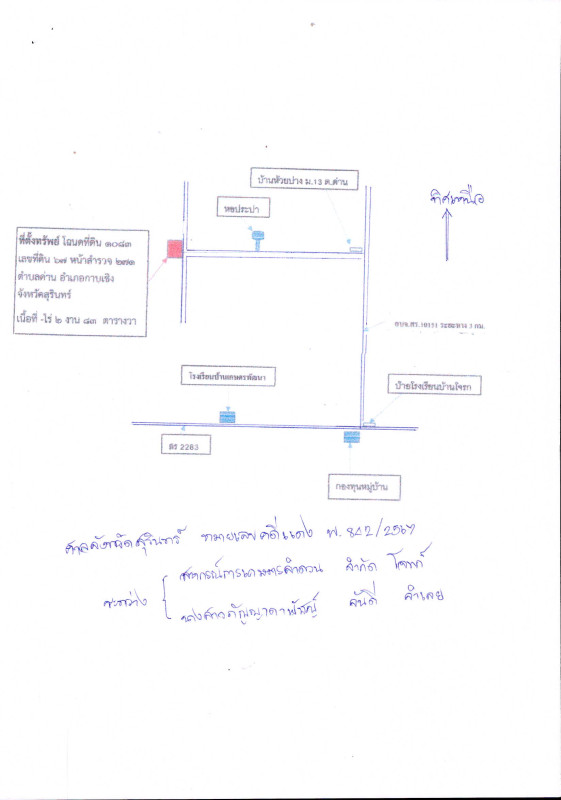 บ้านห้วยปาง ม.13 ต.ด่าน
ทิศเหนือ
หอประปา
ที่ตั้งทรัพย์ โฉนดที่ดิน ๑๐๘๓
เลขที่ดิน ๖๗ หน้าสำรวจ ๒๗๑
ตำบลด่าน อำเภอกาบเชิง
จังหวัดสุรินทร์
เนื้อที่ -ไร่ ๒ งาน ๘๓ ตารางวา
อบจ.สร.10151 ระยะทาง 3 กม.
โรงเรียนบ้านเกษตรพัฒนา
ป้ายโรงเรียนบ้านโจรก
สร 2283
กองทุนหมู่บ้าน
ศาลจังหวัดสุรินทร์ หมายเลขคดีแดง ผ.842/2567
สหกรณ์การเกษตรลำดวน จำกัด โจทก์
ระหว่าง
นางสาวกัญญาดาพัชญ์ สันดี จำเลย